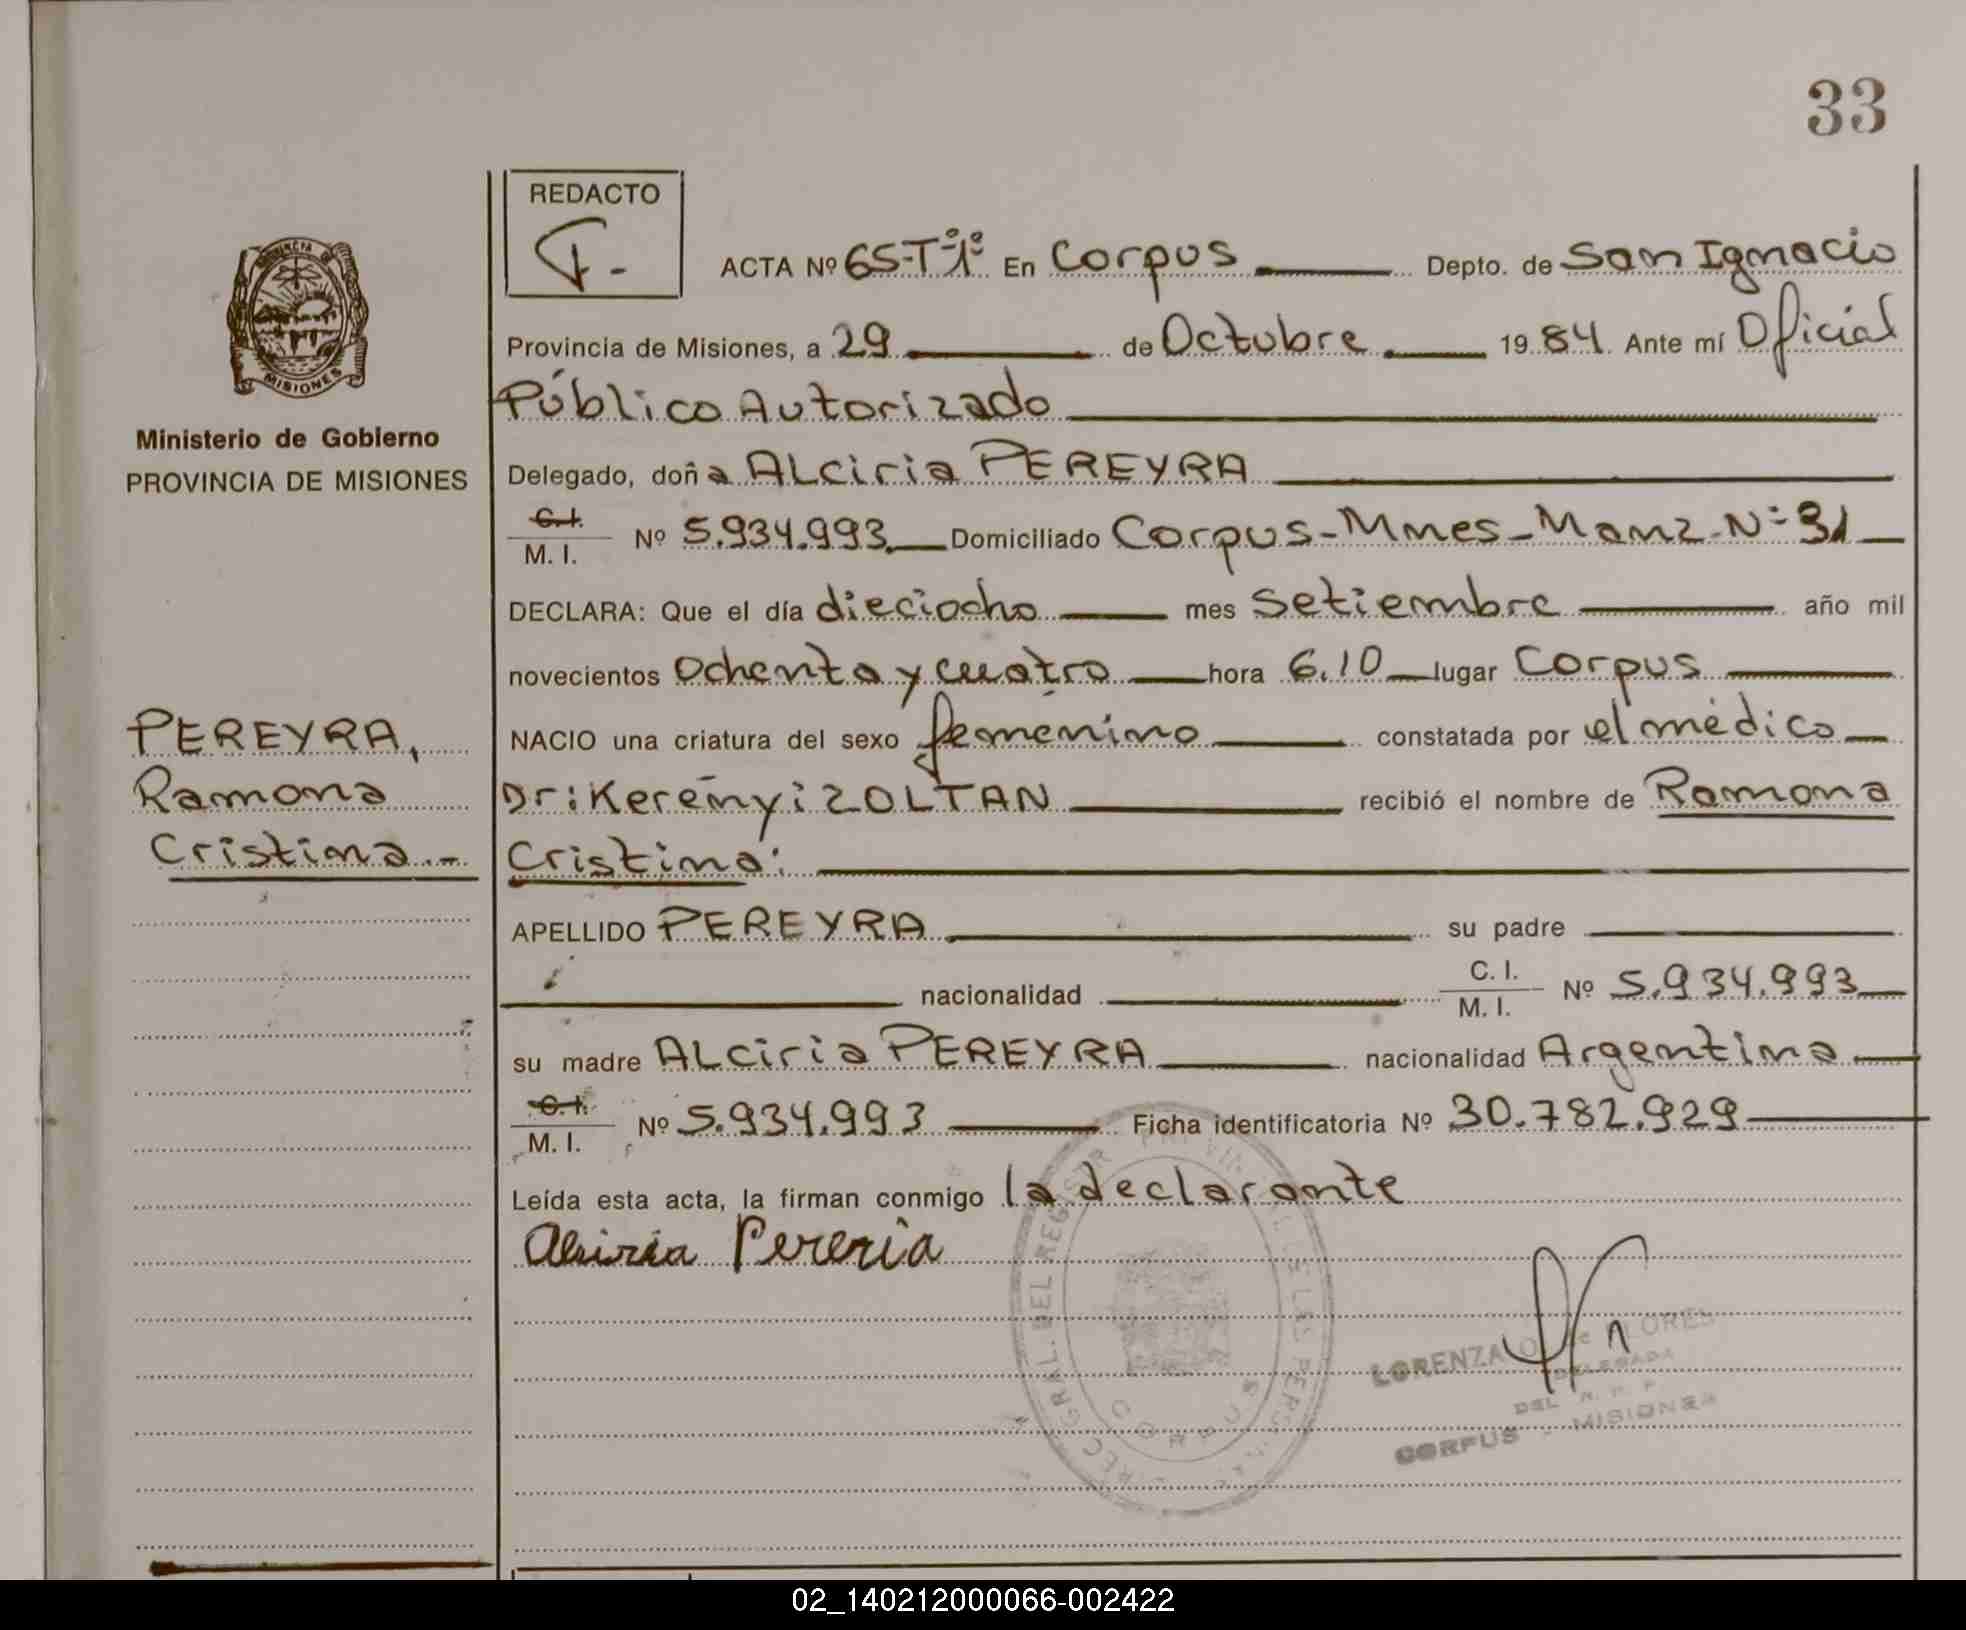 33
REDACTO
ACTA Nº 65-T-1º En Corpus Depto. de San Ignacio
Provincia de Misiones, a 29 de Octubre 1984 Ante mí Oficial
Público Autorizado
Delegado, doña ALciria PEREYRA
C.I. M. I. Nº 5.934.993 Domiciliado Corpus-Mnes-Manz-Nº 31
DECLARA: Que el día dieciocho mes Setiembre año mil
novecientos Ochenta y cuatro hora 6.10 lugar Corpus
NACIO una criatura del sexo femenino constatada por el médico
Dr: Kerényi ZOLTAN recibió el nombre de Ramona
Cristina:
APELLIDO PEREYRA su padre
nacionalidad C. I. M. I. Nº 5.934.993
su madre ALciria PEREYRA nacionalidad Argentina
C.I. M. I. Nº 5.934.993 Ficha identificatoria Nº 30.782.929
Leída esta acta, la firman conmigo la declarante
Alsiria Pereria
PROVINCIA DE
MISIONES
Ministerio de Gobierno
PROVINCIA DE MISIONES
PEREYRA,
Ramona
Cristina.-
CORPUS
LORENZA O. de FLORES
DELEGADA
DEL R. P. P.
CORPUS - MISIONES
02_140212000066-002422